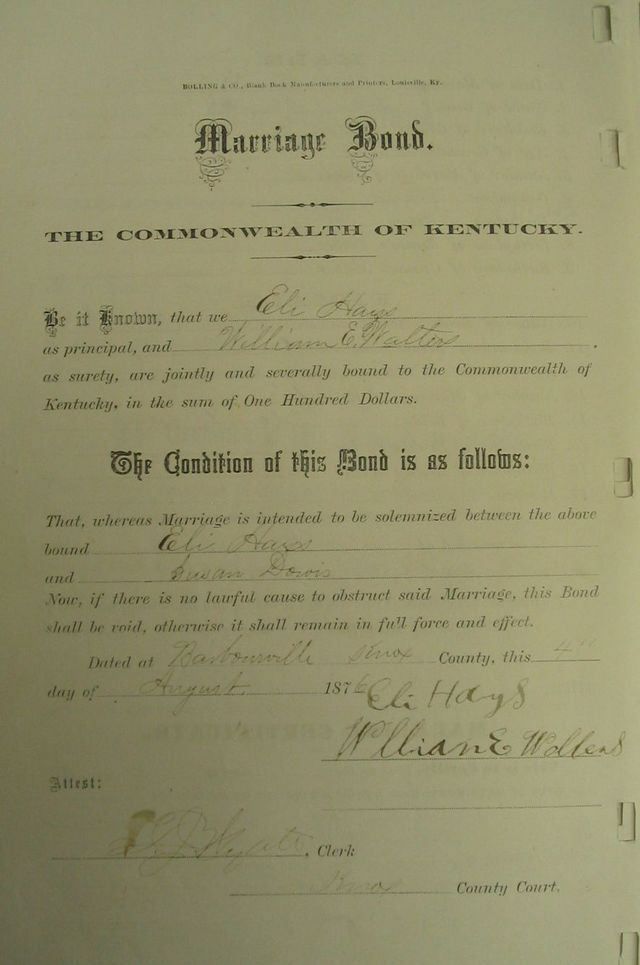 BOLLING & CO., Blank Book Manufacturers and Printers, Louisville, Ky.
Marriage Bond.
THE COMMONWEALTH OF KENTUCKY.
Be it Known, that we Eli Hays
as principal, and William E. Walters
as surety, are jointly and severally bound to the Commonwealth of
Kentucky, in the sum of One Hundred Dollars.
The Condition of this Bond is as follows:
That, whereas Marriage is intended to be solemnized between the above
bound Eli Hays
and Susan Dowis
Now, if there is no lawful cause to obstruct said Marriage, this Bond
shall be void, otherwise it shall remain in full force and effect.
Dated at Barbourville Knox County, this 4"
day of August 1876 Eli Hays
William E
Attest:
Clerk
Knox County Court.